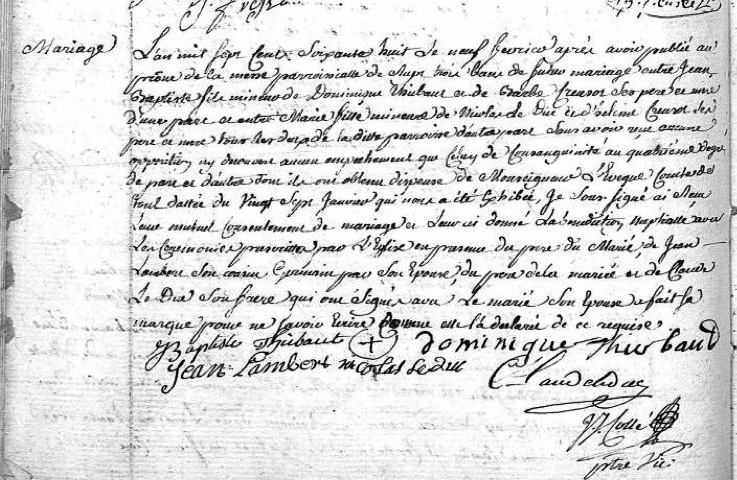 Mariage
L'an mil sept Cent Soixante huit le neuf fevrier après avoir publié au
prone de la messe parroissialle de trois bans de futur mariage entre Jean
Baptiste fils mineur de Dominique thiebaut et de Barbe ses pere et mere
d'une part et entre Marie fille mineure de Nicolas le Duc et d' ses
pere et mere tous les deux de la ditte parroisse d'autre part Sans avoir eut aucune
opposition ny decouvert aucun empechement que Celuy de Consanguinité au quatrieme degré
de part et d'autre dont ils ont obtenu dispense de Monseigneur L'Eveque Comte de
toul dattée du Vingt Sept Janvier qui nous a été Exhibée, Je Soussigné ai Recu
Leur mutuel Consentement de mariage et Leur ai donné La benediction nuptialle avec
Les Ceremonies prescrites par L'Eglise en presence du pere du Marié, de Jean
Lambert Son cousin Germain par Son Epouse, du pere de la mariée et de Claude
Le Duc Son frere qui ont Signés avec Le marié Son Epouse a fait Sa
marque pour ne Savoir Ecrire Comme elle l'a declaré de ce requise
J Baptiste thiebaut + dominique thiebaud
Jean Lambert nicolas le duc
Claude leduc
Collé
ptre Vic: